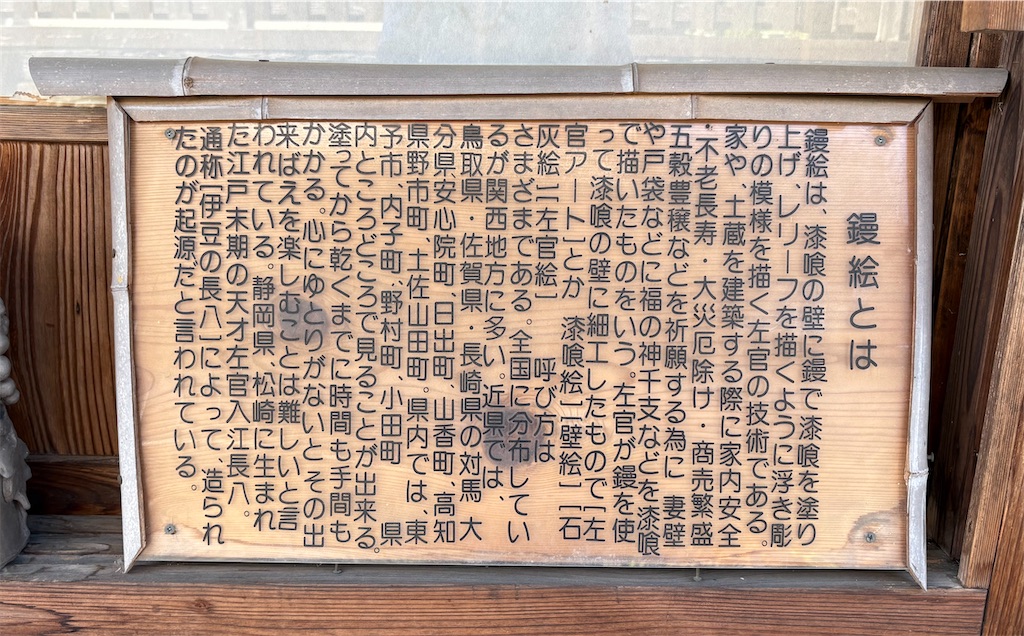 鏝絵とは
鏝絵は、漆喰の壁に鏝で漆喰を塗り
上げ、レリーフを描くように浮き彫
りの模様を描く左官の技術である。
家や、土蔵を建築する際に家内安全
・不老長寿・大災厄除け・商売繁盛
五穀豊穣などを祈願する為に 妻壁
や戸袋などに福の神千支などを漆喰
で描いたものをいう。左官が鏝を使
って漆喰の壁に細工したもので「左
官アート」とか 漆喰絵」「壁絵」「石
灰絵」「左官絵」 呼び方は
さまざまである。全国に分布してい
るが関西地方に多い。近県では、
鳥取県・佐賀県・長崎県の対馬 大
分県、安心院町、日出町、山香町、高知
県野市町、土佐山田町。県内では、東
予市、内子町、野村町、小田町 県
内ところどころで見ることが出来る。
塗ってから乾くまでに時間も手間も
かかる。心にゆとりがないとその出
来ばえを楽しむことは難しいと言
われている。静岡県、松崎に生まれ
た江戸末期の天才左官入江長八。
通称「伊豆の長八」によって、造られ
たのが起源だと言われている。